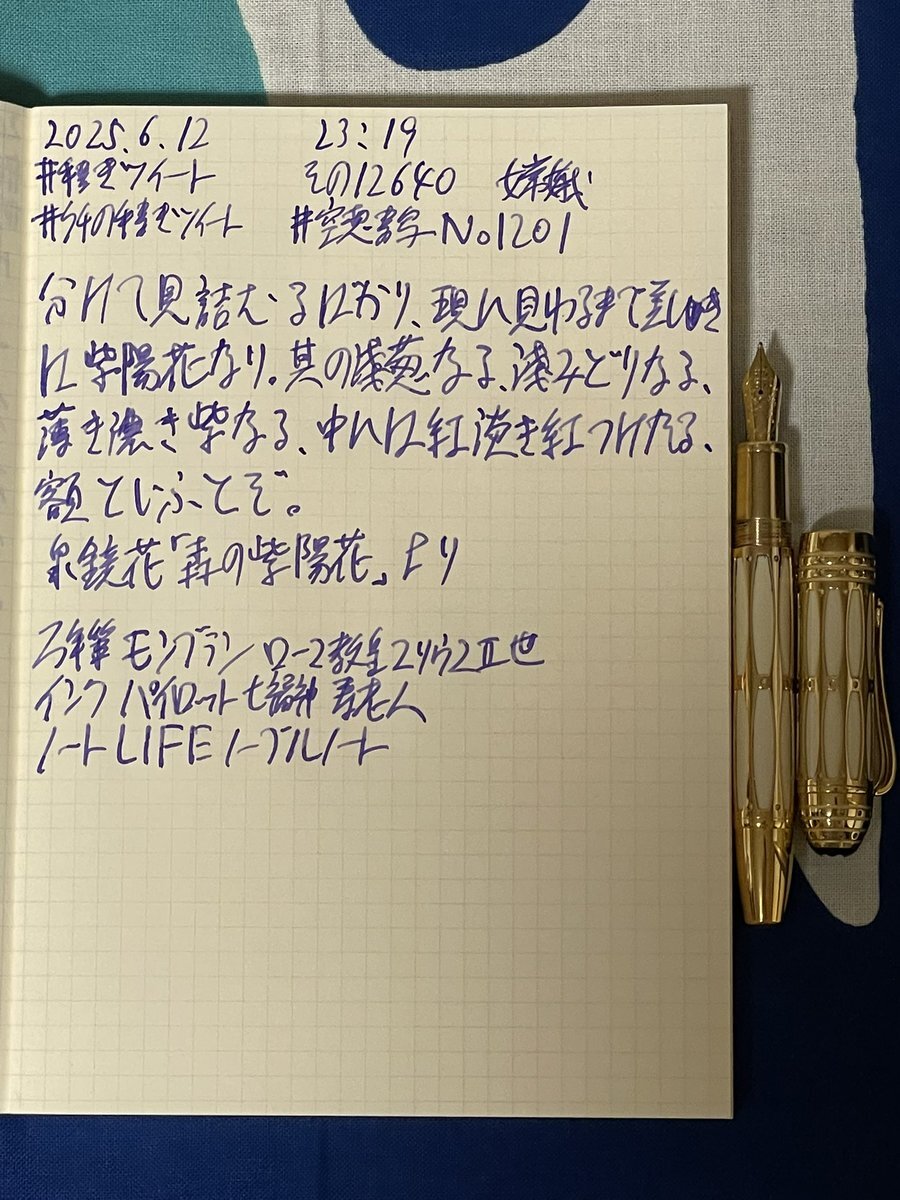 2025.6.12 23:19
#手書きツイート その12640 嫦娥
#夕午の手書きツイート #空想書写 No1201
分けて見詰むるばかり、現に見ゆるまで美しき
は紫陽花なり。其の淺葱なる、淺みどりなる、
薄き濃き紫なる、中には紅淡き紅つけたる、
額といふとぞ。
泉鏡花「森の紫陽花」より
万年筆 モンブラン ローマ教皇ユリウス二世
インク パイロット七福神 寿老人
ノート LIFE ノーブルノート